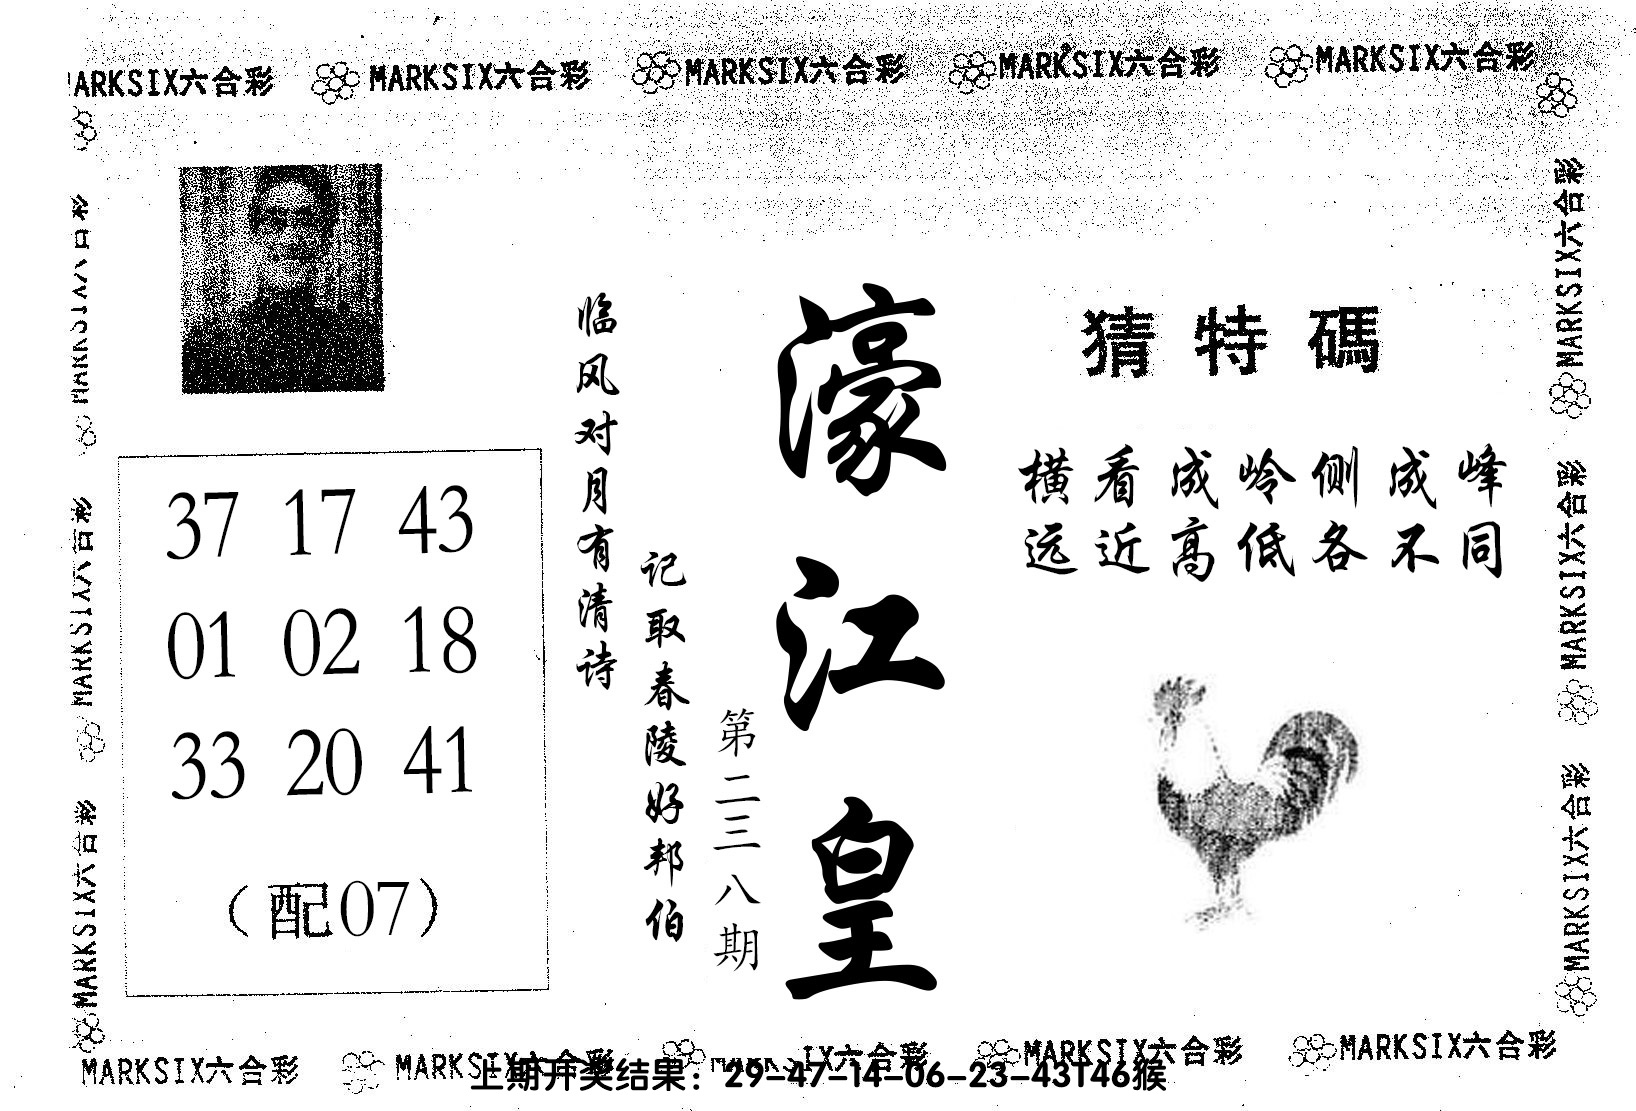 MARKSIX六合彩 MARKSIX六合彩 MARKSIX六合彩 MARKSIX六合彩 MARKSIX六合彩
MARKSIX六合彩
MARKSIX六合彩
MARKSIX六合彩
37 17 43
01 02 18
33 20 41
(配07)
临风对月有清诗
记取春陵好邦伯
第二三八期
濠江皇
猜特碼
横看成岭侧成峰
远近高低各不同
MARKSIX六合彩
MARKSIX六合彩
MARKSIX六合彩
MARKSIX六合彩 MARKSIX六合彩 MARKSIX六合彩 MARKSIX六合彩 MARKSIX六合彩
上期开奖结果：29-47-14-06-23-43T46猴